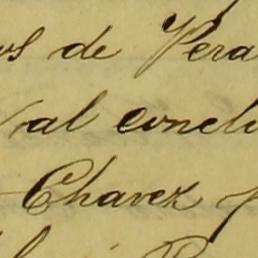 os de Vera
al conclu
Chavez